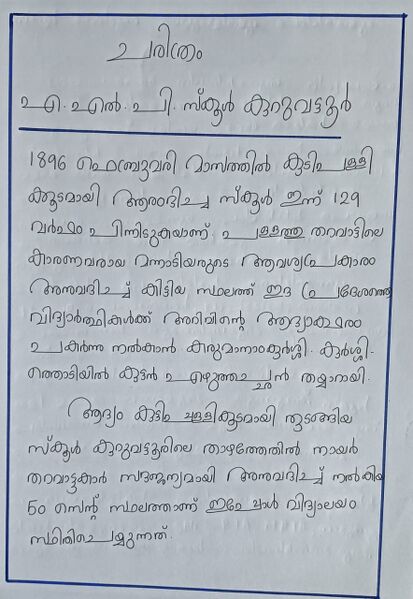 ചരിത്രം
എ.എൽ.പി. സ്കൂൾ കുറുവട്ടൂർ
1896 ഫെബ്രുവരി മാസത്തിൽ കുടിപള്ളി
ക്കൂടമായി ആരംഭിച്ച സ്കൂൾ ഇന്ന് 129
വർഷം പിന്നിടുകയാണ്. പള്ളത്തു തറവാട്ടിലെ
കാരണവരായ മന്നാടിയരുടെ ആവശ്യപ്രകാരം
അനുവദിച്ച് കിട്ടിയ സ്ഥലത്ത് ഇൗ പ്രദേശത്തെ
വിദ്യാർത്ഥികൾക്ക് അറിവിന്റെ ആദ്യാക്ഷരം
പകർന്നു നൽകാൻ കരുമാനാംകുർശ്ശി. കുർശ്ശി-
ത്തൊടിയിൽ കുട്ടൻ എഴുത്തച്ഛൻ തയ്യാറായി.
ആദ്യം കുടിപള്ളികൂടമായി തുടങ്ങിയ
സ്കൂൾ കുറുവട്ടൂരിലെ താഴത്തേതിൽ നായർ
തറവാട്ടുകാർ സൗജന്യമായി അനുവദിച്ച് നൽകിയ
50 സെന്റ് സ്ഥലത്താണ് ഇപ്പോൾ വിദ്യാലയം
സ്ഥിതിചെയ്യുന്നത്.